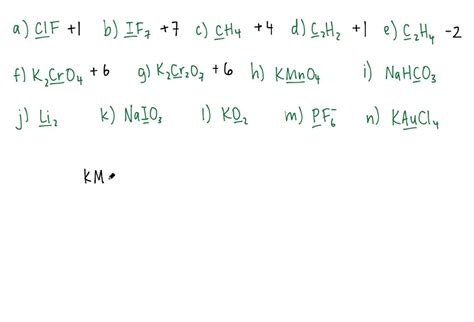 a) ClF +1 b) IF₇ +7 c) CH₄ +4 d) C₂H₂ +1 e) C₂H₄ -2
f) K₂CrO₄ +6 g) K₂Cr₂O₇ +6 h) KMnO₄ i) NaHCO₃
j) Li₂ k) NaIO₃ l) KO₂ m) PF₆⁻ n) KAuCl₄
KM